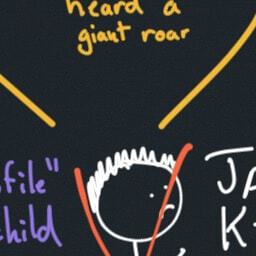 heard a
giant roar
file"
child
JA
K